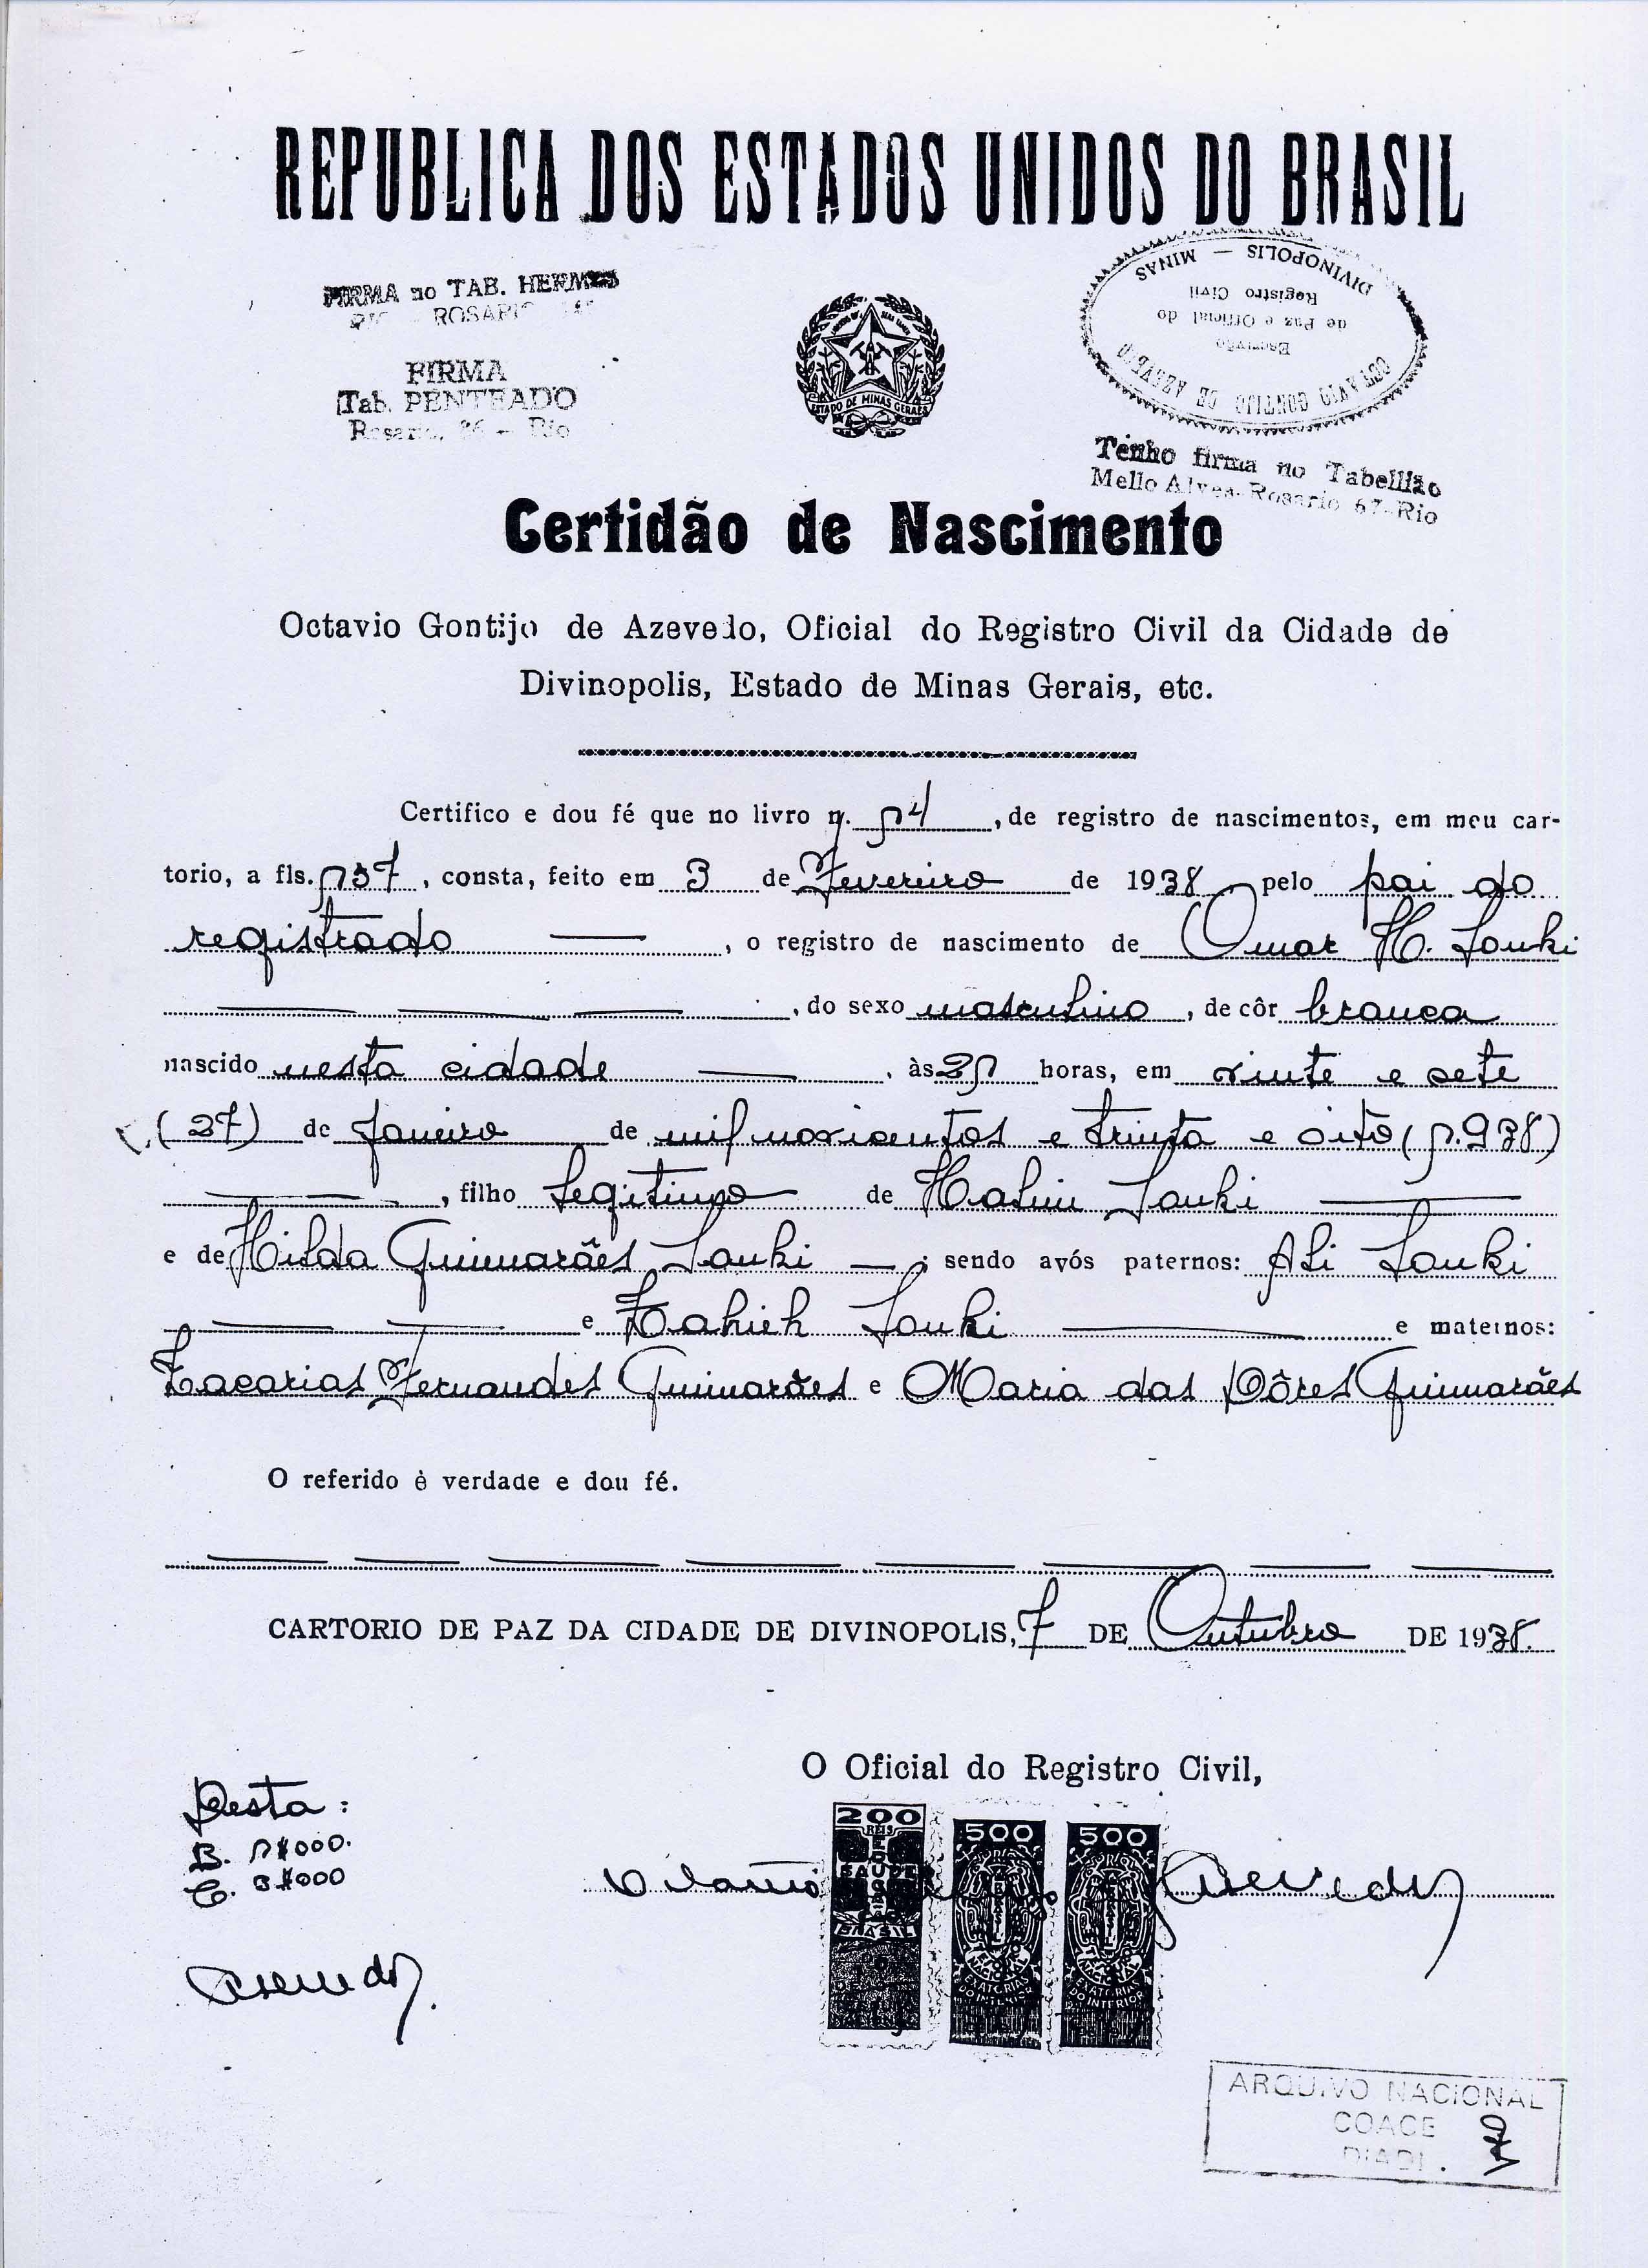 REPUBLICA DOS ESTADOS UNIDOS DO BRASIL
FIRMA no TAB. HERMES
ROSARIO
FIRMA
Tab. PENTEADO
Rosario, 36 — Rio
ESTADO DE MINAS GERAES
OCTAVIO GONTIJO DE AZEVEDO
Escrivão
de Paz e Official do
Registro Civil
DIVINOPOLIS — MINAS
Tenho firma no Tabellião
Mello Alves-Rosario 67-Rio
Certidão de Nascimento
Octavio Gontijo de Azevedo, Oficial do Registro Civil da Cidade de
Divinopolis, Estado de Minas Gerais, etc.
Certifico e dou fé que no livro n. 14, de registro de nascimentos, em meu car-
torio, a fls. 137, consta, feito em 3 de Fevereiro de 1938 pelo pai do
registrado, o registro de nascimento de Omar H. Souki
, do sexo masculino, de côr branca
nascido nesta cidade, às 21 horas, em vinte e sete
(27) de Janeiro de mil novicentos e trinta e oito (1.938)
, filho legitimo de Halim Souki
e de Hilda Guimarães Souki; sendo avós paternos: Ali Souki
e Zakieh Souki e maternos:
Zacarias Fernandes Guimarães e Maria das Dôres Guimarães
O referido é verdade e dou fé.
CARTORIO DE PAZ DA CIDADE DE DIVINOPOLIS, 7 DE Outubro DE 1938.
O Oficial do Registro Civil,
Desta:
B. 1$000.
C. 3$000
Azevedo.
200 500 500
REIS
SAUDE
BRASIL
EXATORIAS
DO INTERIOR
EXATORIAS
DO INTERIOR
Octavio Azevedo
ARQUIVO NACIONAL
COACE
DIADI.